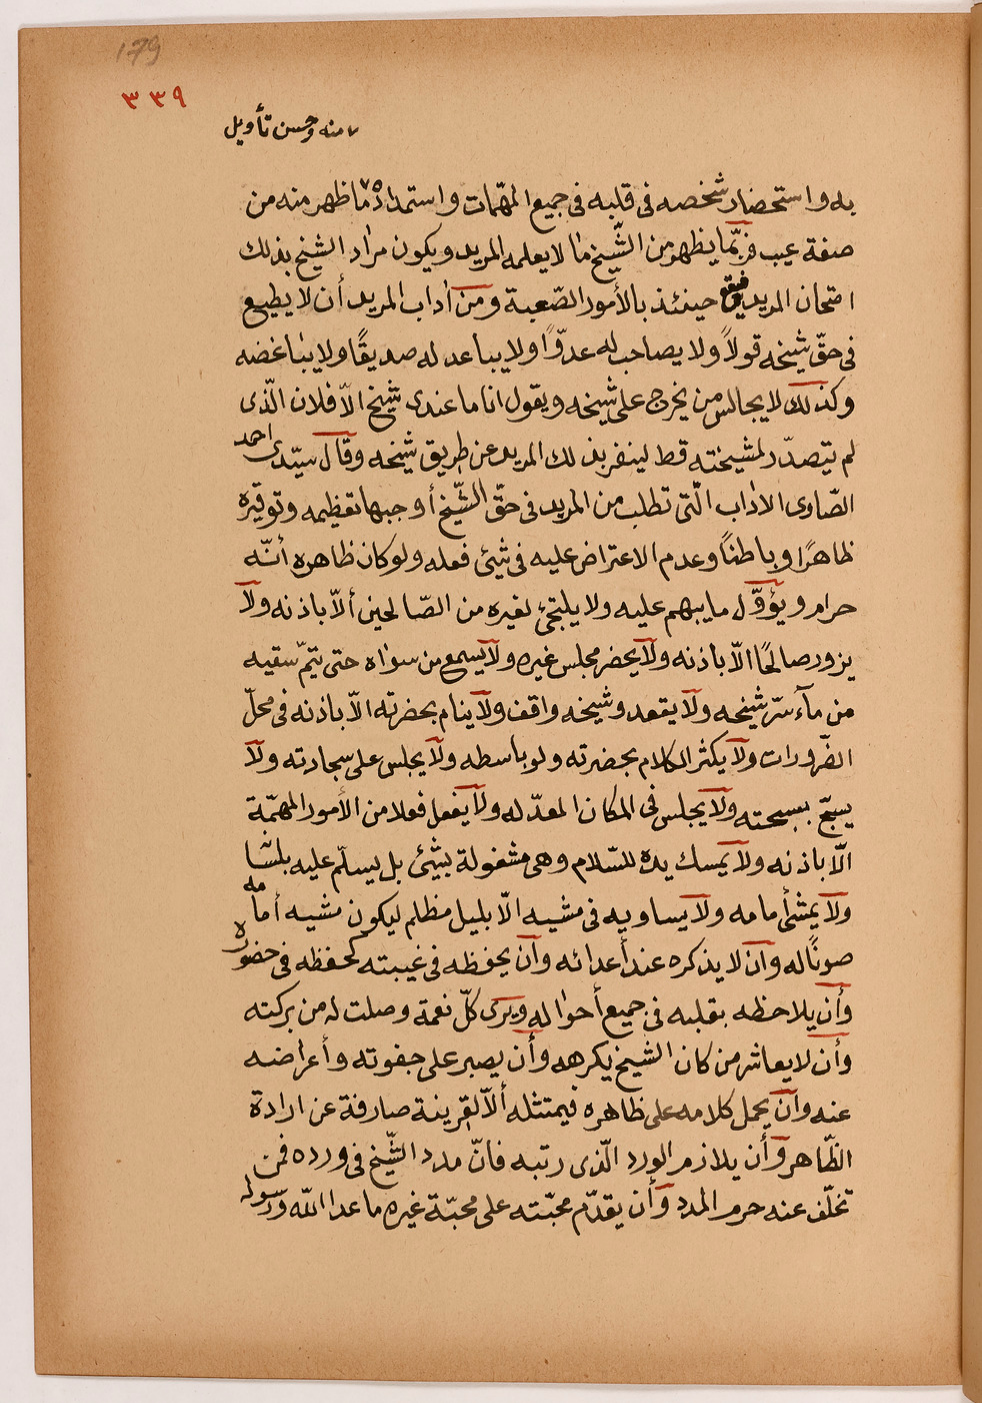 179
٣٣٩
٧ منه وحسن تأويل
به واستحضار شخصه فى قلبه فى جميع المهمّات واستمداده ٧ ما ظهر منه من
صفة عيب فربّما يظهر من الشّيخ ما لا يعلمه المريد ويكون مراد الشيخ بذلك
امتحان المريد حينئذ بالأمور الصّعبة ومن اداب المريد أن لا يطيع
فى حقّ شيخه قولاً ولا يصاحب له عدوًّا ولا يباعد له صديقًا ولا يباغضه
وكذلك لا يجالس من يخرج على شيخه ويقول انا ما عندى شيخ الاّ فلان الّذى
لم يتصدّر لمشيخته قط لينفر بذلك المريد عن طريق شيخه وقال سيّدى احمد
الصّاوى الاداب الّتى تطلب من المريد فى حقّ الشّيخ أوجبها تعظيمه وتوقيره
ظاهرًا وباطنًا وعدم الاعتراض عليه فى شئ فعله ولو كان ظاهره أنّه
حرام ويؤوّل ما يبهم عليه ولا يلتجئ لغيره من الصّالحين ألاّ باذنه ولا
يزور صالحًا الاّ باذنه ولا يحضر مجلس غيره ولا يسمع من سواه حتى يتمّ سقيه
من مآء سرّ شيخه ولا يقعد وشيخه واقف ولا ينام بحضرته الاّ باذنه فى محلّ
الضّرورات ولا يكثر الكلام بحضرته ولو باسطه ولا يجلس على سجادته ولا
يسبّح بسبحته ولا يجلس فى المكان المعدّ له ولا يفعل فعلا من الأمور المهمّة
الاّ باذنه ولا يمسك يده للسّلام وهى مشغولة بشئ بل يسلّم عليه بلسا
ولا يمشى أمامه ولا يساويه فى مشيه الاّ بليل مظلم ليكون مشيه أمامه
صونًا له وأن لا يذكره عند أعدائه وأن يحفظه فى غيبته كحفظه فى حضوره
وأن يلاحظه بقلبه فى جميع أحواله ويرى كلّ نعمة وصلت له من بركته
وأن لا يعاشر من كان الشيخ يكرهه وأن يصبر على جفوته وأعراضه
عنه وأن يحمل كلامه على ظاهره فيمتثله ألاّ لقرينة صارفة عن ارادة
الظّاهر وأن يلازم الورد الّذى رتبه فانّ مدد الشّيخ فى ورده فمن
تخلّف عنه حرم المدد وأن يقدّم محبّته على محبّة غيره ما عدا اللّه ورسوله